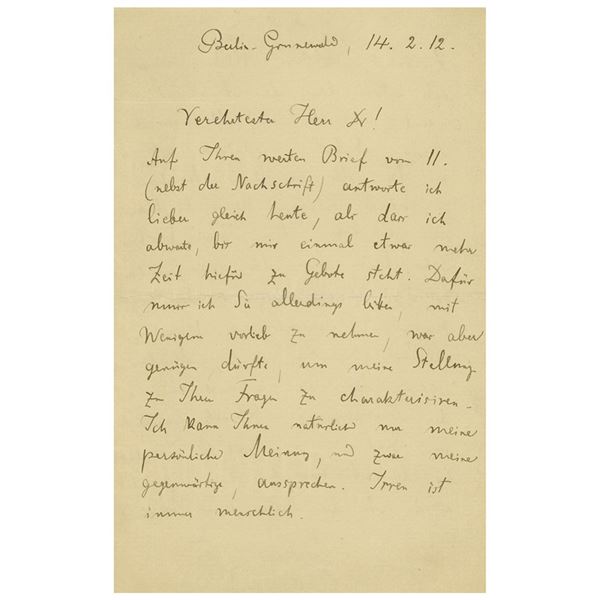 Berlin-Grunewald, 14.2.12.
Verehrtester Herr Dr!
Auf Ihren werten Brief vom 11.
(nebst der Nachschrift) antworte ich
lieber gleich heute, als dass ich
abwarte, bis mir einmal etwas mehr
Zeit hiefür zu Gebote steht. Dafür
muss ich Sie allerdings bitten, mit
Wenigem vorlieb zu nehmen, was aber
genügen dürfte, um meine Stellung
zu Ihren Fragen zu charakterisiren.
Ich kann Ihnen natürlich nur meine
persönliche Meinung, und zwar meine
gegenwärtige, aussprechen. Irren ist
immer menschlich.